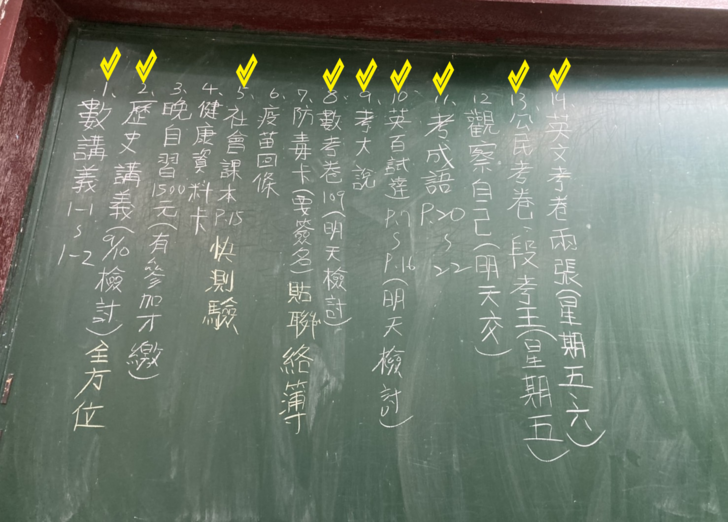 1、數講義1-1~1-2
2、歷史講義(9/10檢討)全方位
3、晚自習1500元(有參加才繳)
4、健康資料卡
5、社會課本P.15 快測驗
6、疫苗回條
7、防毒卡(要簽名)貼聯絡簿
8、數考卷109(明天檢討)
9、考大說
10、英百試達P.7~P.16(明天檢討)
11、考成語P.20~22
12、觀察自己(明天交)
13、公民考卷、段考王(星期五)
14、英文考卷兩張(星期五、六)